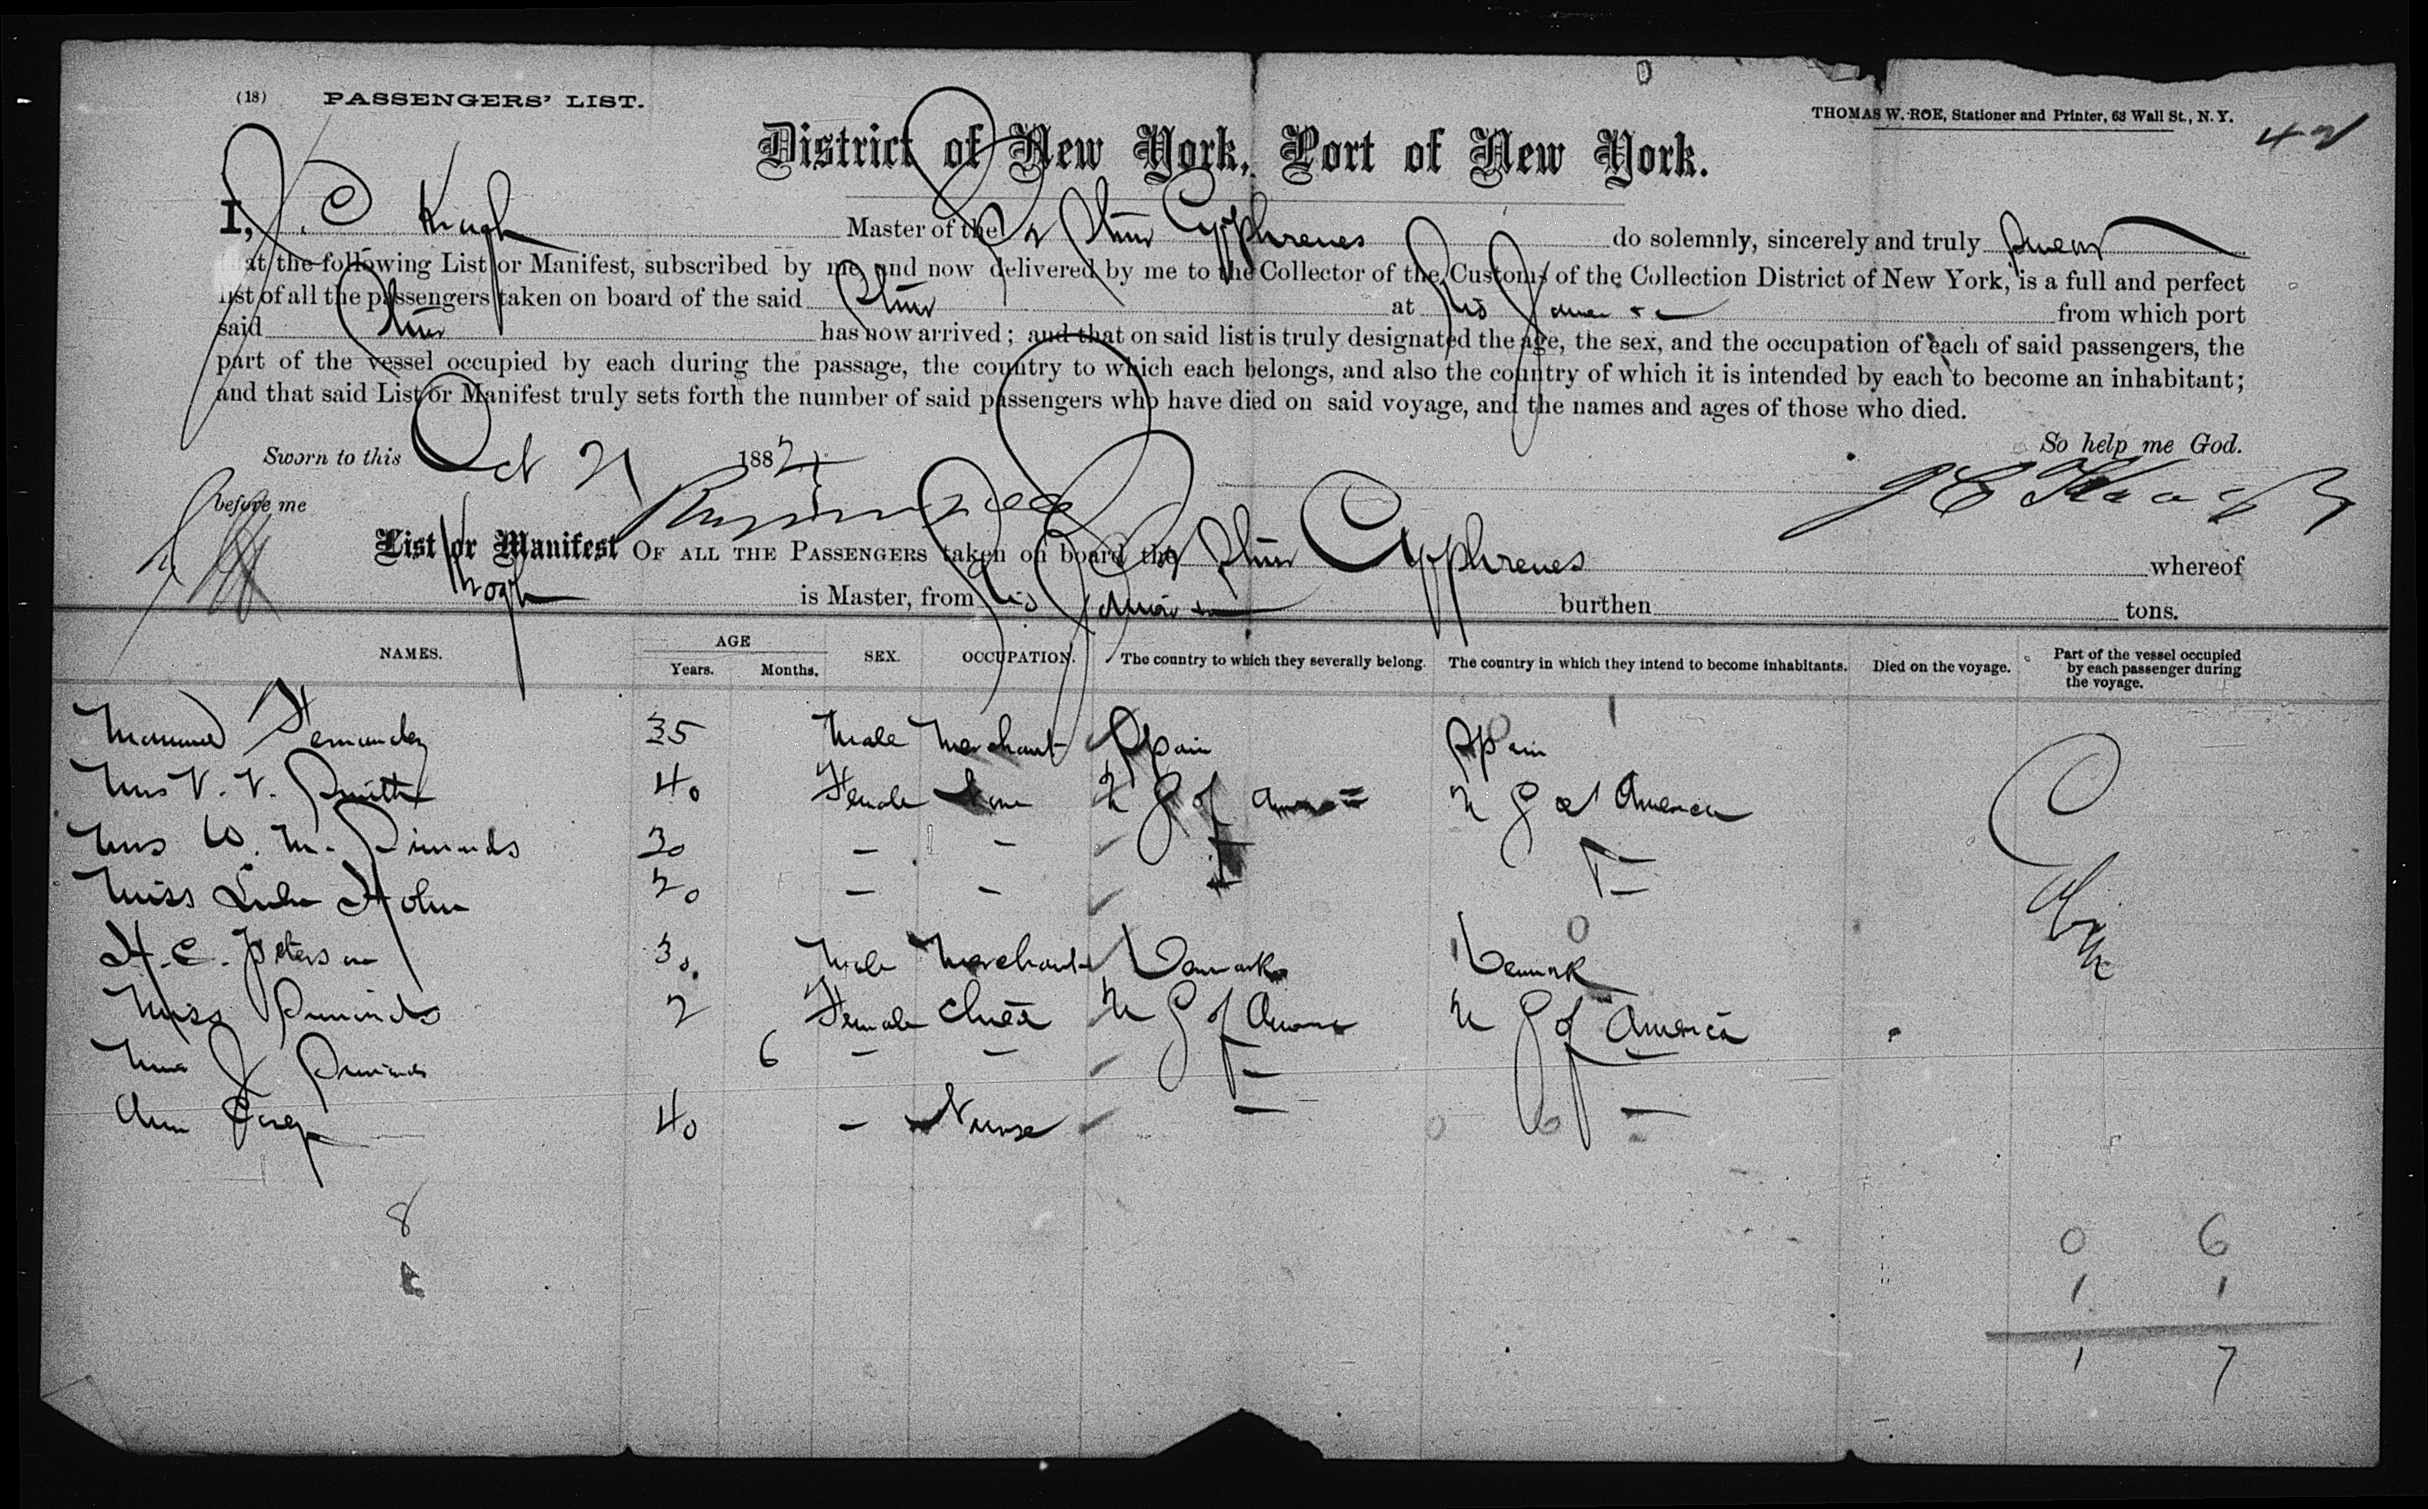 (18) PASSENGERS' LIST.
THOMAS W. ROE, Stationer and Printer, 63 Wall St., N. Y.
District of New York, Port of New York.
I, J. C Krogh Master of the Br Stmr Cyphrenes do solemnly, sincerely and truly swear
that the following List or Manifest, subscribed by me and now delivered by me to the Collector of the Customs of the Collection District of New York, is a full and perfect
list of all the passengers taken on board of the said Stmr at Rio Janeiro from which port
said Stmr has now arrived; and that on said list is truly designated the age, the sex, and the occupation of each of said passengers, the
part of the vessel occupied by each during the passage, the country to which each belongs, and also the country of which it is intended by each to become an inhabitant;
and that said List or Manifest truly sets forth the number of said passengers who have died on said voyage, and the names and ages of those who died.
So help me God.
Sworn to this Oct 21 1882
before me
J C Krogh
List or Manifest OF ALL THE PASSENGERS taken on board the Br Stmr Cyphrenes whereof
Krogh is Master, from Rio Janeiro burthen tons.
NAMES. AGE Years. Months. SEX. OCCUPATION. The country to which they severally belong. The country in which they intend to become inhabitants. Died on the voyage. Part of the vessel occupied by each passenger during the voyage.
Manuel Fernandez 35 Male Merchant Spain Spain
Mrs V. V. Smith 40 Female None U S of America U S of America
Mrs W. M. Simonds 30 — — — —
Miss Lulu Hohn 20 — — — —
H. C. Peterson 30 Male Merchant Denmark Denmark
Miss Simonds 2 Female Child U S of America U S of America
J Simonds 6 — — — —
Ann 40 — Nurse — —
Cabin
8
0 6
1 1
1 7